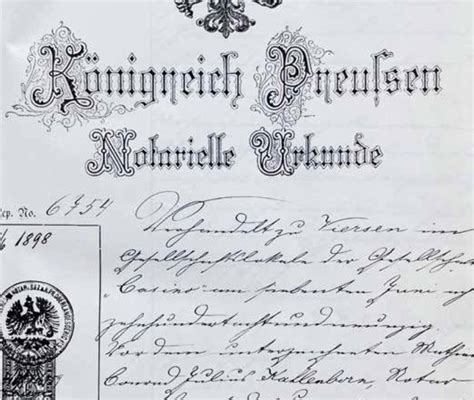 Königreich Preuſsen
Notarielle Urkunde
Rep. No. 6754
Verhandelt zu Viersen im
1898
Gesellschaftslokale der Gesellschaft
„Casino“ am siebenten Juni
zehnhundertachtundneunzig.
Vor dem unterzeichneten Mathias
Conrad Julius Kallenborn, Notar